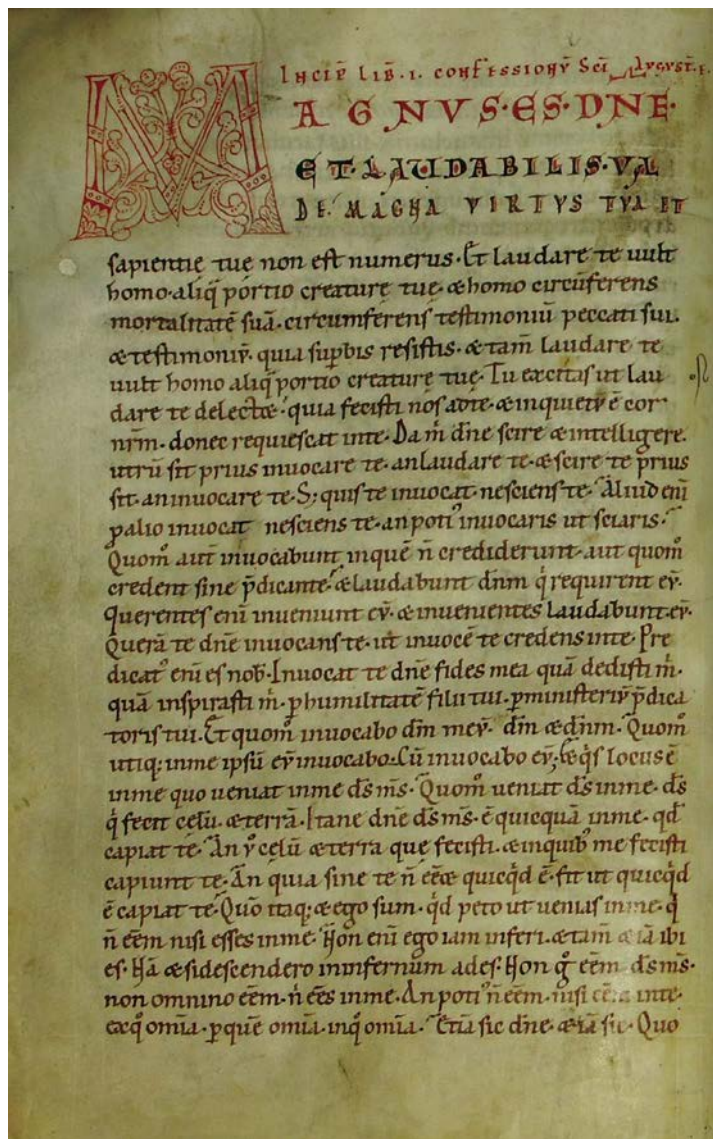 INCIP̄ LIB̄. I. CONFESSIONV̄ SC̄I AVGVSTI.
MAGNVS·ES·DN̄E·
ET·LAUDABILIS·VAL
DE·MAGNA VIRTVS TVA ET
sapientię tuę non est numerus· Et laudare te uult
homo· aliq̄ portio creaturę tuę· & homo circūferens
mortalitatē suā· circumferens testimoniū peccati sui·
& testimoniū· quia sup̄bis resistis· & tam̄ laudare te
uult homo aliq̄ portio creaturę tuę· Tu excitas ut lau
dare te delect&· quia fecisti nos adte· & inquietū ē cor
nr̄m· donec requiescat inte· Da m̄ dn̄e scire & intelligere·
utrū sit prius inuocare te· an laudare te· & scire te prius
sit· an inuocare te· S; quis te inuocat· nesciens te· Aliud eni̅
ꝑ alio inuocat nesciens te· an poti᷒ inuocaris ut sciaris·
Quom̊ aut̄ inuocabunt inquē n̄ crediderunt· aut quom̊
credent sine p̄dicante· & laudabunt dn̄m q̇ requirunt eū·
Querentes eni̅ inueniunt eū· & inuenientes laudabunt eū·
Querā te dn̄e inuocans te· ut inuocē te credens inte· Prę
dicat᷒ eni̅ es nob̄· Inuocat te dn̄e fides mea quā dedisti m̄·
quā inspirasti m̄· ꝑ humilitatē filii tui· ꝑ ministeriū p̄dica
toris tui· Et quom̊ inuocabo dm̄ meū· dm̄ & dn̄m· Quom̊
utiq; inme ipsū eū inuocabo· Cū inuocabo eū; & q̇s locus ē
inme quo ueniat inme ds̄ ms̄· Quom̊ ueniat ds̄ inme· ds̄
q̇ fecit celū· & terrā· Itane dn̄e ds̄ ms̄· ē quicquā inme· qd̄
capiat te· An ū celū & terra que fecisti· & inquib᷒ me fecisti
capiunt te· An quia sine te n̄ eē& quicq̇d ē· fit ut quicq̇d
ē capiat te· Quō itaq; & ego sum· q̇d peto ut uenias inme· q̇
n̄ eēm nisi esses inme· Non eni̅ ego iam inferi· & tam̄ & iā ibi
es· Nā & si descendero in infernum ades· Non ġ eēm ds̄ ms̄·
non omnino eēm· n̄ eēs inme· An poti᷒ n̄ eēm· nisi inte·
exq̊ om̄ia· ꝑ quē om̄ia· inq̊ om̄ia· Etiā sic dn̄e· & iā sic· Quo